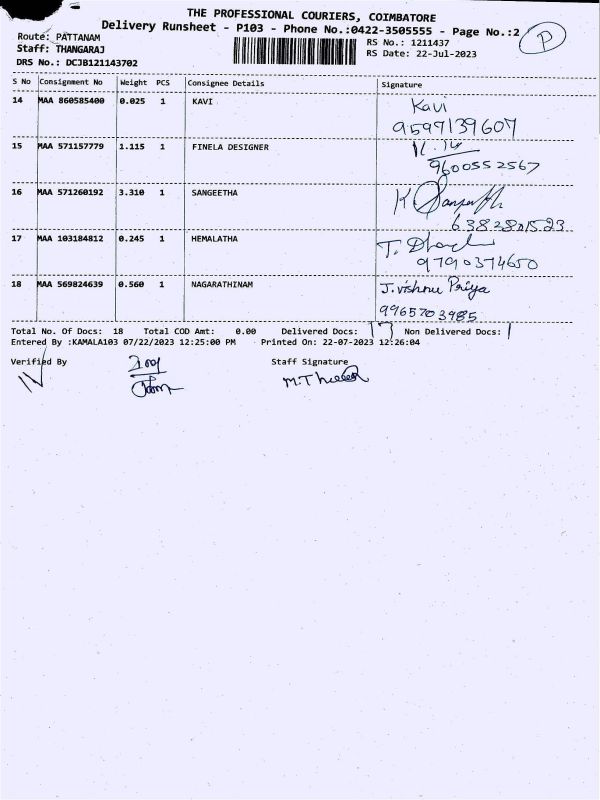 THE PROFESSIONAL COURIERS, COIMBATORE
Delivery Runsheet - P103 - Phone No.:0422-3505555 - Page No.:2 P
Route: PATTANAM RS No.: 1211437
Staff: THANGARAJ RS Date: 22-Jul-2023
DRS No.: DCJB121143702
S No Consignment No Weight PCS Consignee Details Signature
14 MAA 860585400 0.025 1 KAVI Kavi
9597139607
15 MAA 571157779 1.115 1 FINELA DESIGNER
9600552567
16 MAA 571260192 3.310 1 SANGEETHA K
6382801523
17 MAA 103184812 0.245 1 HEMALATHA T.
9790374650
18 MAA 569824639 0.560 1 NAGARATHINAM J. Vishnu Priya
9965703985
Total No. Of Docs: 18 Total COD Amt: 0.00 Delivered Docs: 17 Non Delivered Docs: 1
Entered By :KAMALA103 07/22/2023 12:25:00 PM Printed On: 22-07-2023 12:26:04
Verified By Staff Signature